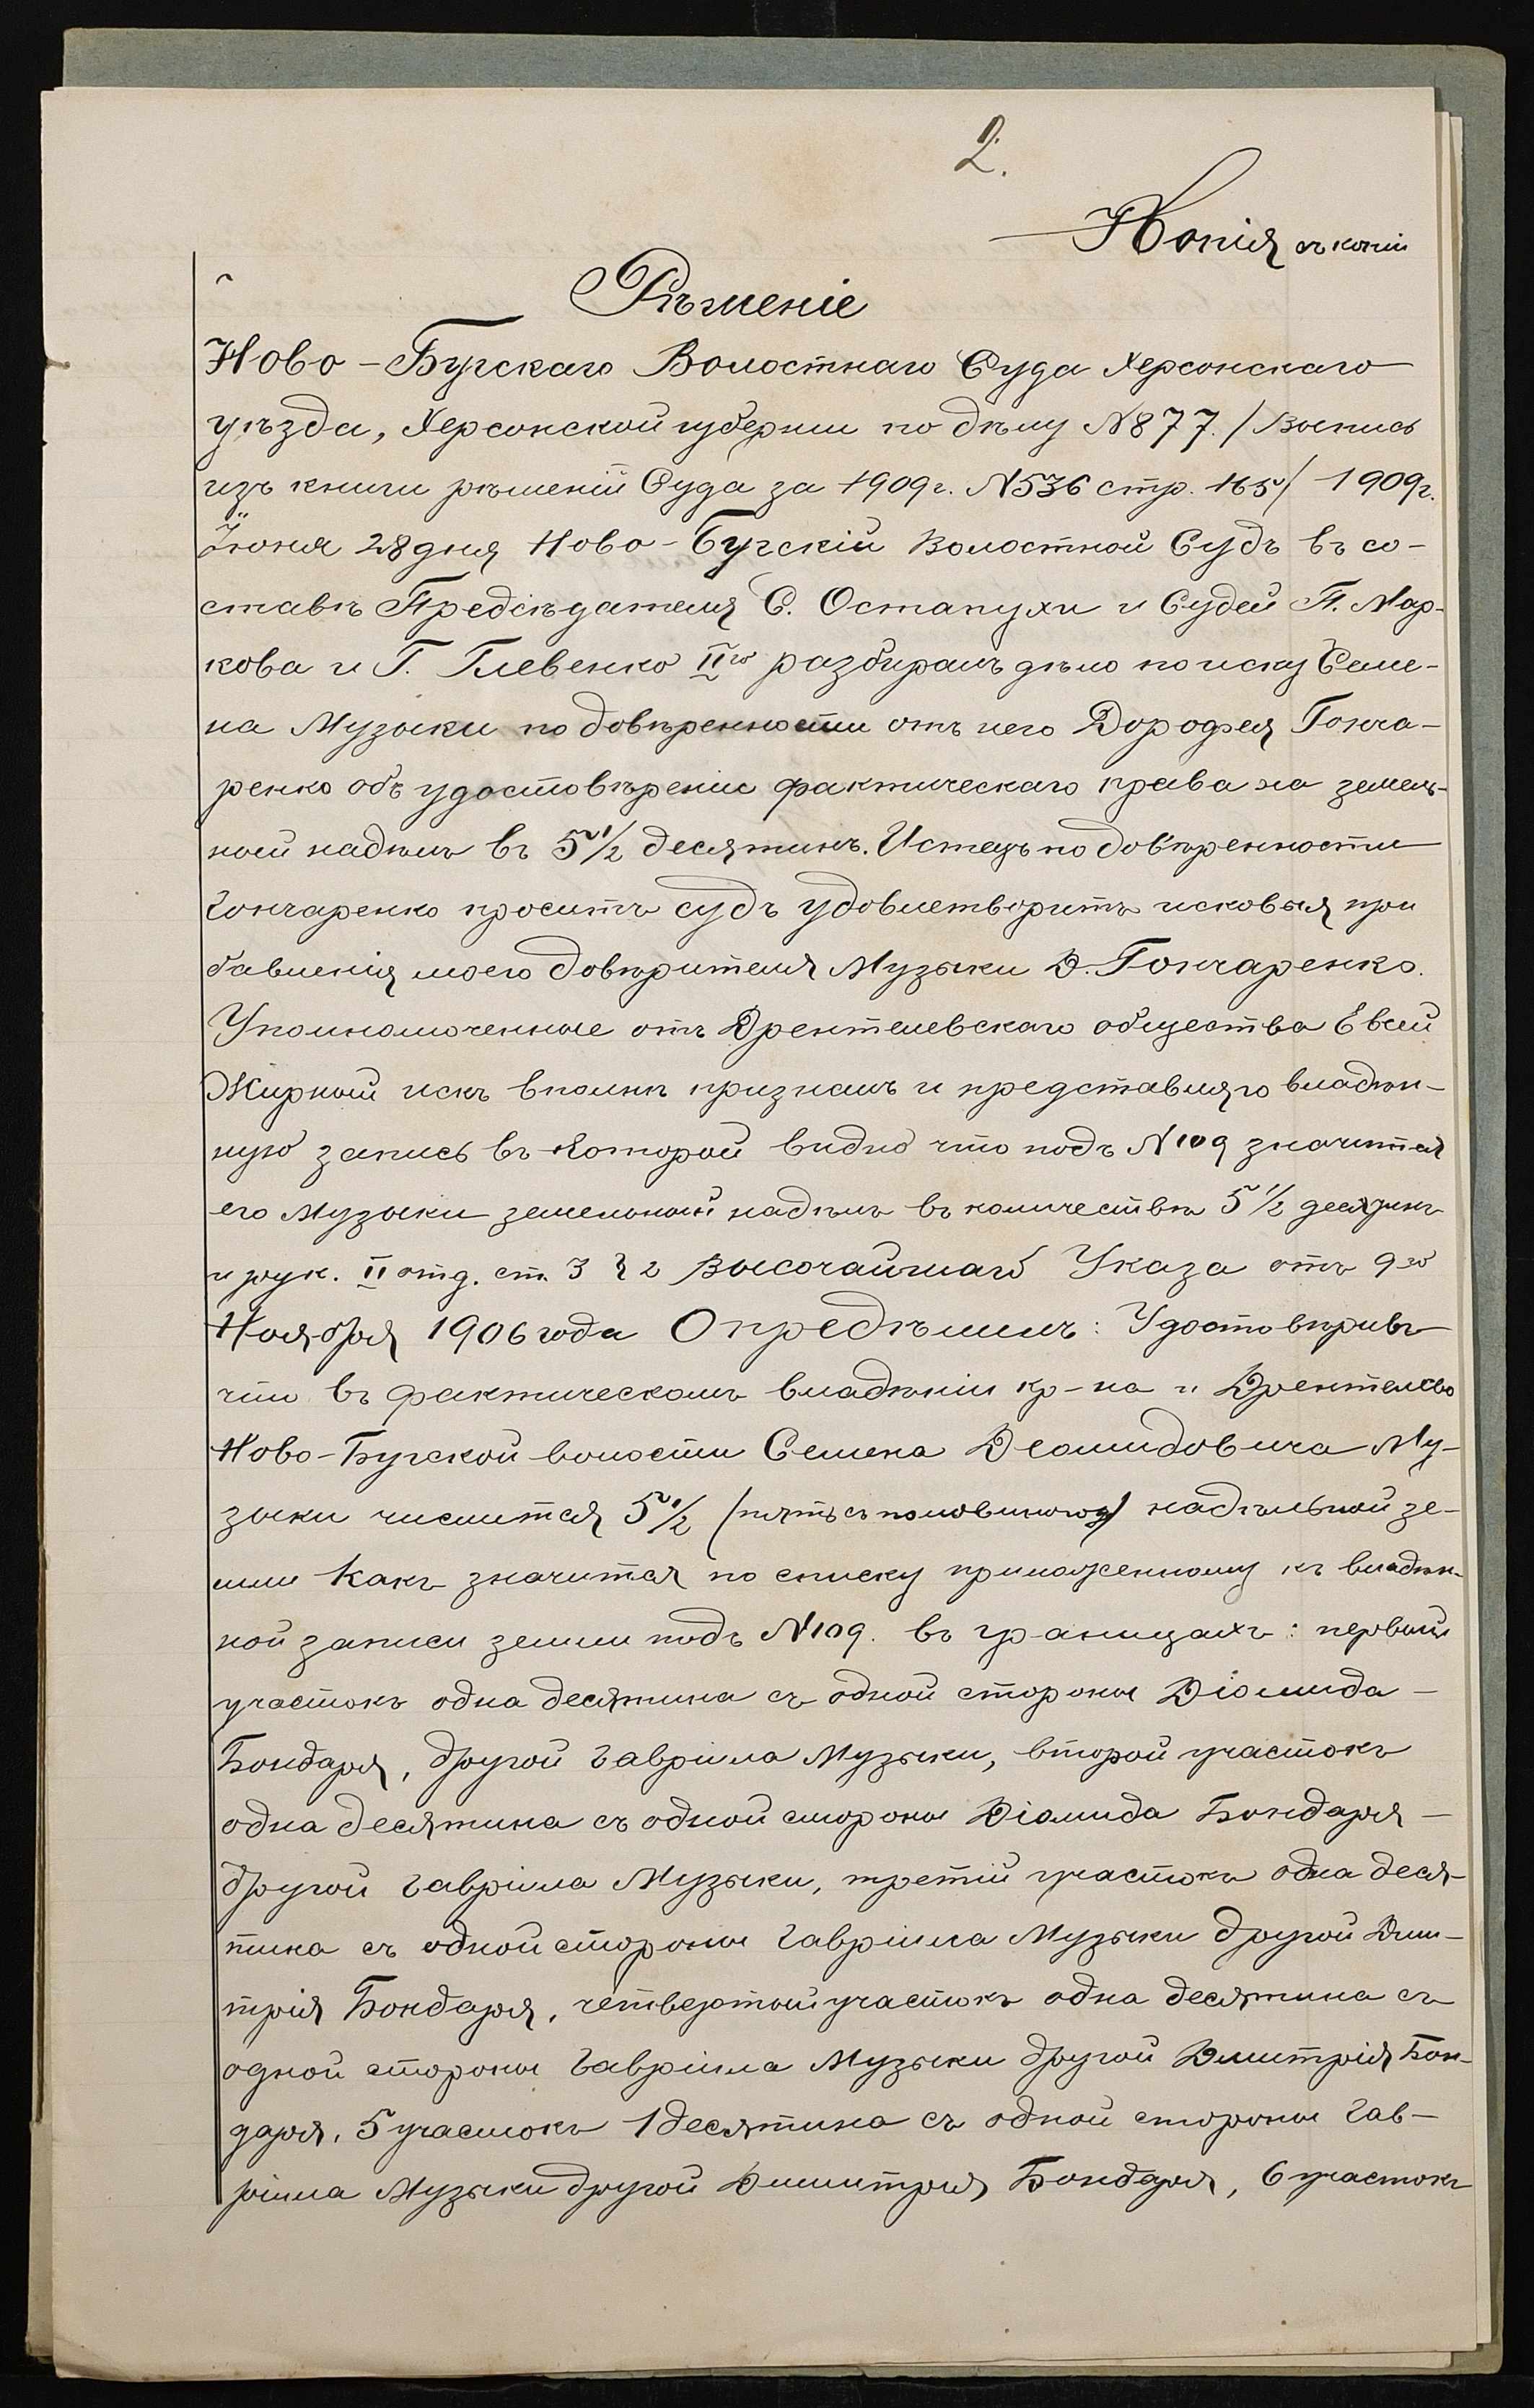 2.
Копія съ копіи
Рѣшеніе
Ново-Бугскаго Волостнаго Суда Херсонскаго
уѣзда, Херсонской губерніи по дѣлу N 877. /Выпись
изъ книги рѣшеній Суда за 1909 г. N 536 стр. 165/ 1909 г.
Іюня 28 дня Ново-Бугскій Волостной Судъ въ со-
ставѣ Предсѣдателя С. Остапухи и Судей П. Мар-
кова и Г. Глевенко IIго разбиралъ дѣло по иску Семе-
на Музыки по довѣренности отъ него Дорофея Гонча-
ренко объ удостовѣреніи фактическаго права на земель-
ный надѣлъ въ 5 1/2 десятинъ. Истецъ по довѣренности
Гончаренко проситъ судъ удовлетворить исковыя при
бавленія моего довѣрителя Музыки Д. Гончаренко.
Уполномоченные отъ Дрентелевскаго общества Евсей
Жирный искъ вполнѣ призналъ и представляю владѣн-
ную запись въ которой видно что подъ N 109 значится
его Музыки земельный надѣлъ въ количествѣ 5 1/2 десятинъ
и рук. II отд. ст. 3 § 2 Высочайшаго Указа отъ 9го
Ноября 1906 года Опредѣлилъ: Удостовѣривъ
что въ фактическомъ владѣніи кр-на Дрентелево
Ново-Бугской волости Семена Деомидовича Му-
зыки числится 5 1/2 /пять съ половиною/ надѣльной зе-
мли какъ значится по списку приложенному къ владѣн-
ной записи земли подъ N 109. въ границахъ: первый
участокъ одна десятина съ одной стороны Діомида
Бондаря, другой Гавріила Музыки, второй участокъ
одна десятина съ одной стороны Діомида Бондаря
другой Гавріила Музыки, третій участокъ одна деся-
тина съ одной стороны Гавріила Музыки другой Дми-
трія Бондаря, четвертый участокъ одна десятина съ
одной стороны Гавріила Музыки другой Дмитрія Бон-
даря, 5 участокъ 1 десятина съ одной стороны Гав-
ріила Музыки другой Дмитрія Бондаря, 6 участокъ